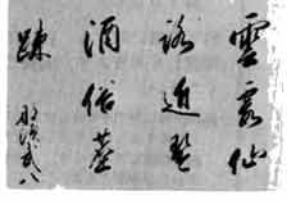 雲霞仙
路近琴
酒俗塵
疎